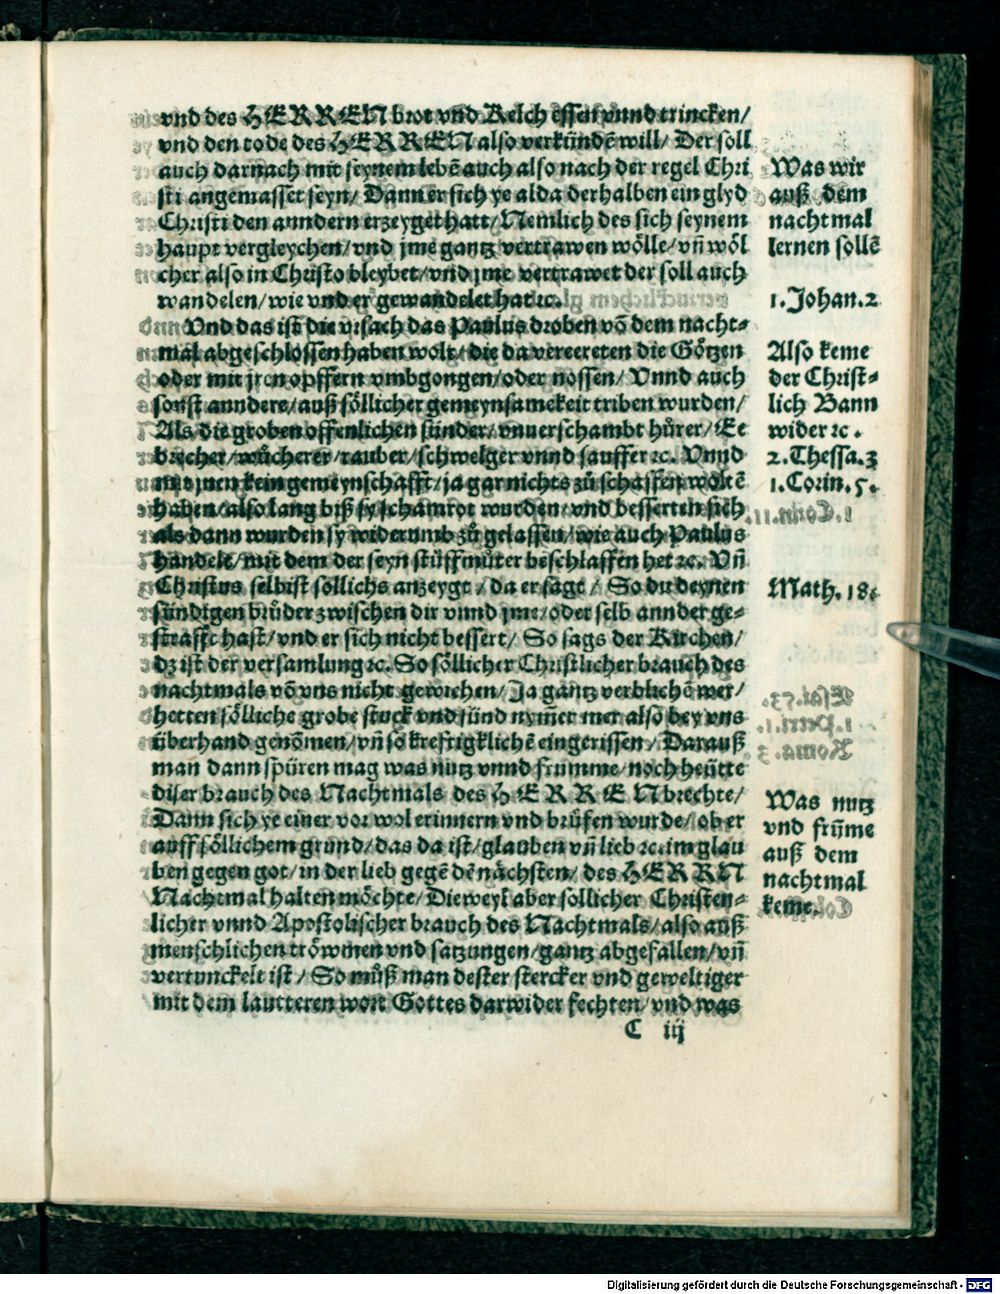 vnd des HERREN brot vnd Kelch essen vnnd trincken/
vnd den tode des HERREN also verkündē will/ Der soll
auch darnach mit seynem lebē auch also nach der regel Chri
sti angemasset seyn/ Dann er sich ye alda derhalben ein glyd
Christi den anndern erzeyget hatt/ Nemlich des sich seynem
haupt vergleychen/ vnd jme gantz vertrawen wölle/ vñ wöl
cher also in Christo bleybet/ vnd jme vertrawet der soll auch
wandelen/ wie vnd er gewandelet hat ꝛc.
Vnd das ist die vrsach das Paulus droben vō dem nacht⸗
mal abgeschlossen haben wolt/ die da vereereten die Götzen
oder mit jren opffern vmbgongen/ oder nossen/ Vnnd auch
sonst anndere/ auß söllicher gemeynsamckeit triben wurden/
Als die groben offenlichen sünder/ vnuerschambt hůrer/ Ee
brecher/ wůcherer/ rauber/ schwelger vnnd sauffer ꝛc. Vnnd
mit jnen kein gemeynschafft/ ja gar nichts zů schaffen woltē
haben/ also lang biß sy schamrot wurden/ vnd besserten sich
als dann wurden sy widerumb zů gelassen/ wie auch Paulus
handelt/ mit dem der seyn stüffmůter beschlaffen het ꝛc. Vñ
Christus selbist sollichs anzeygt/ da er sagt/ So du deynen
sündigen brůder zwischen dir vnnd jme/ oder selb annder ge⸗
strafft hast/ vnd er sich nicht bessert/ So sags der Kirchen/
dz ist der versamlung ꝛc. So söllicher Christlicher brauch des
nachtmals vō vns nicht gewichen/ Ja gantz verblichē wer/
hetten sölliche grobe stuck vnd sünd nym̄er mer also bey vns
überhand genōmen/ vñ so krefrigklichē eingerissen/ Darauß
man dann spüren mag was nutz vnnd frumme/ noch heütte
diser brauch des Nachtmals des HERREN brechte/
Dann sich ye einer vor wol erinnern vnd brüfen wurde/ ob er
auff söllichem grund/ das da ist/ glauben vñ lieb ꝛc. im glau
ben gegen got/ in der lieb gegē dē nächsten/ des HERRN
Nachtmal halten möchte/ Dieweyl aber sollicher Christen⸗
licher vnnd Apostolischer brauch des Nachtmals/ also auß
menschlichen tröwmen vnd satzungen/ gantz abgefallen/ vñ
vertunckelt ist/ So můß man dester stercker vnd geweltiger
mit dem lautteren wort Gottes darwider fechten/ vnd was
C iij
Was wir
auß dem
nachtmal
lernen sollē
1. Johan. 2
Also keme
der Christ⸗
lich Bann
wider ꝛc.
2. Thessa. 3
1. Corin. 5.
Math. 18.
Was nutz
vnd frūme
auß dem
nachtmal
keme.
Digitalisierung gefördert durch die Deutsche Forschungsgemeinschaft - DFG